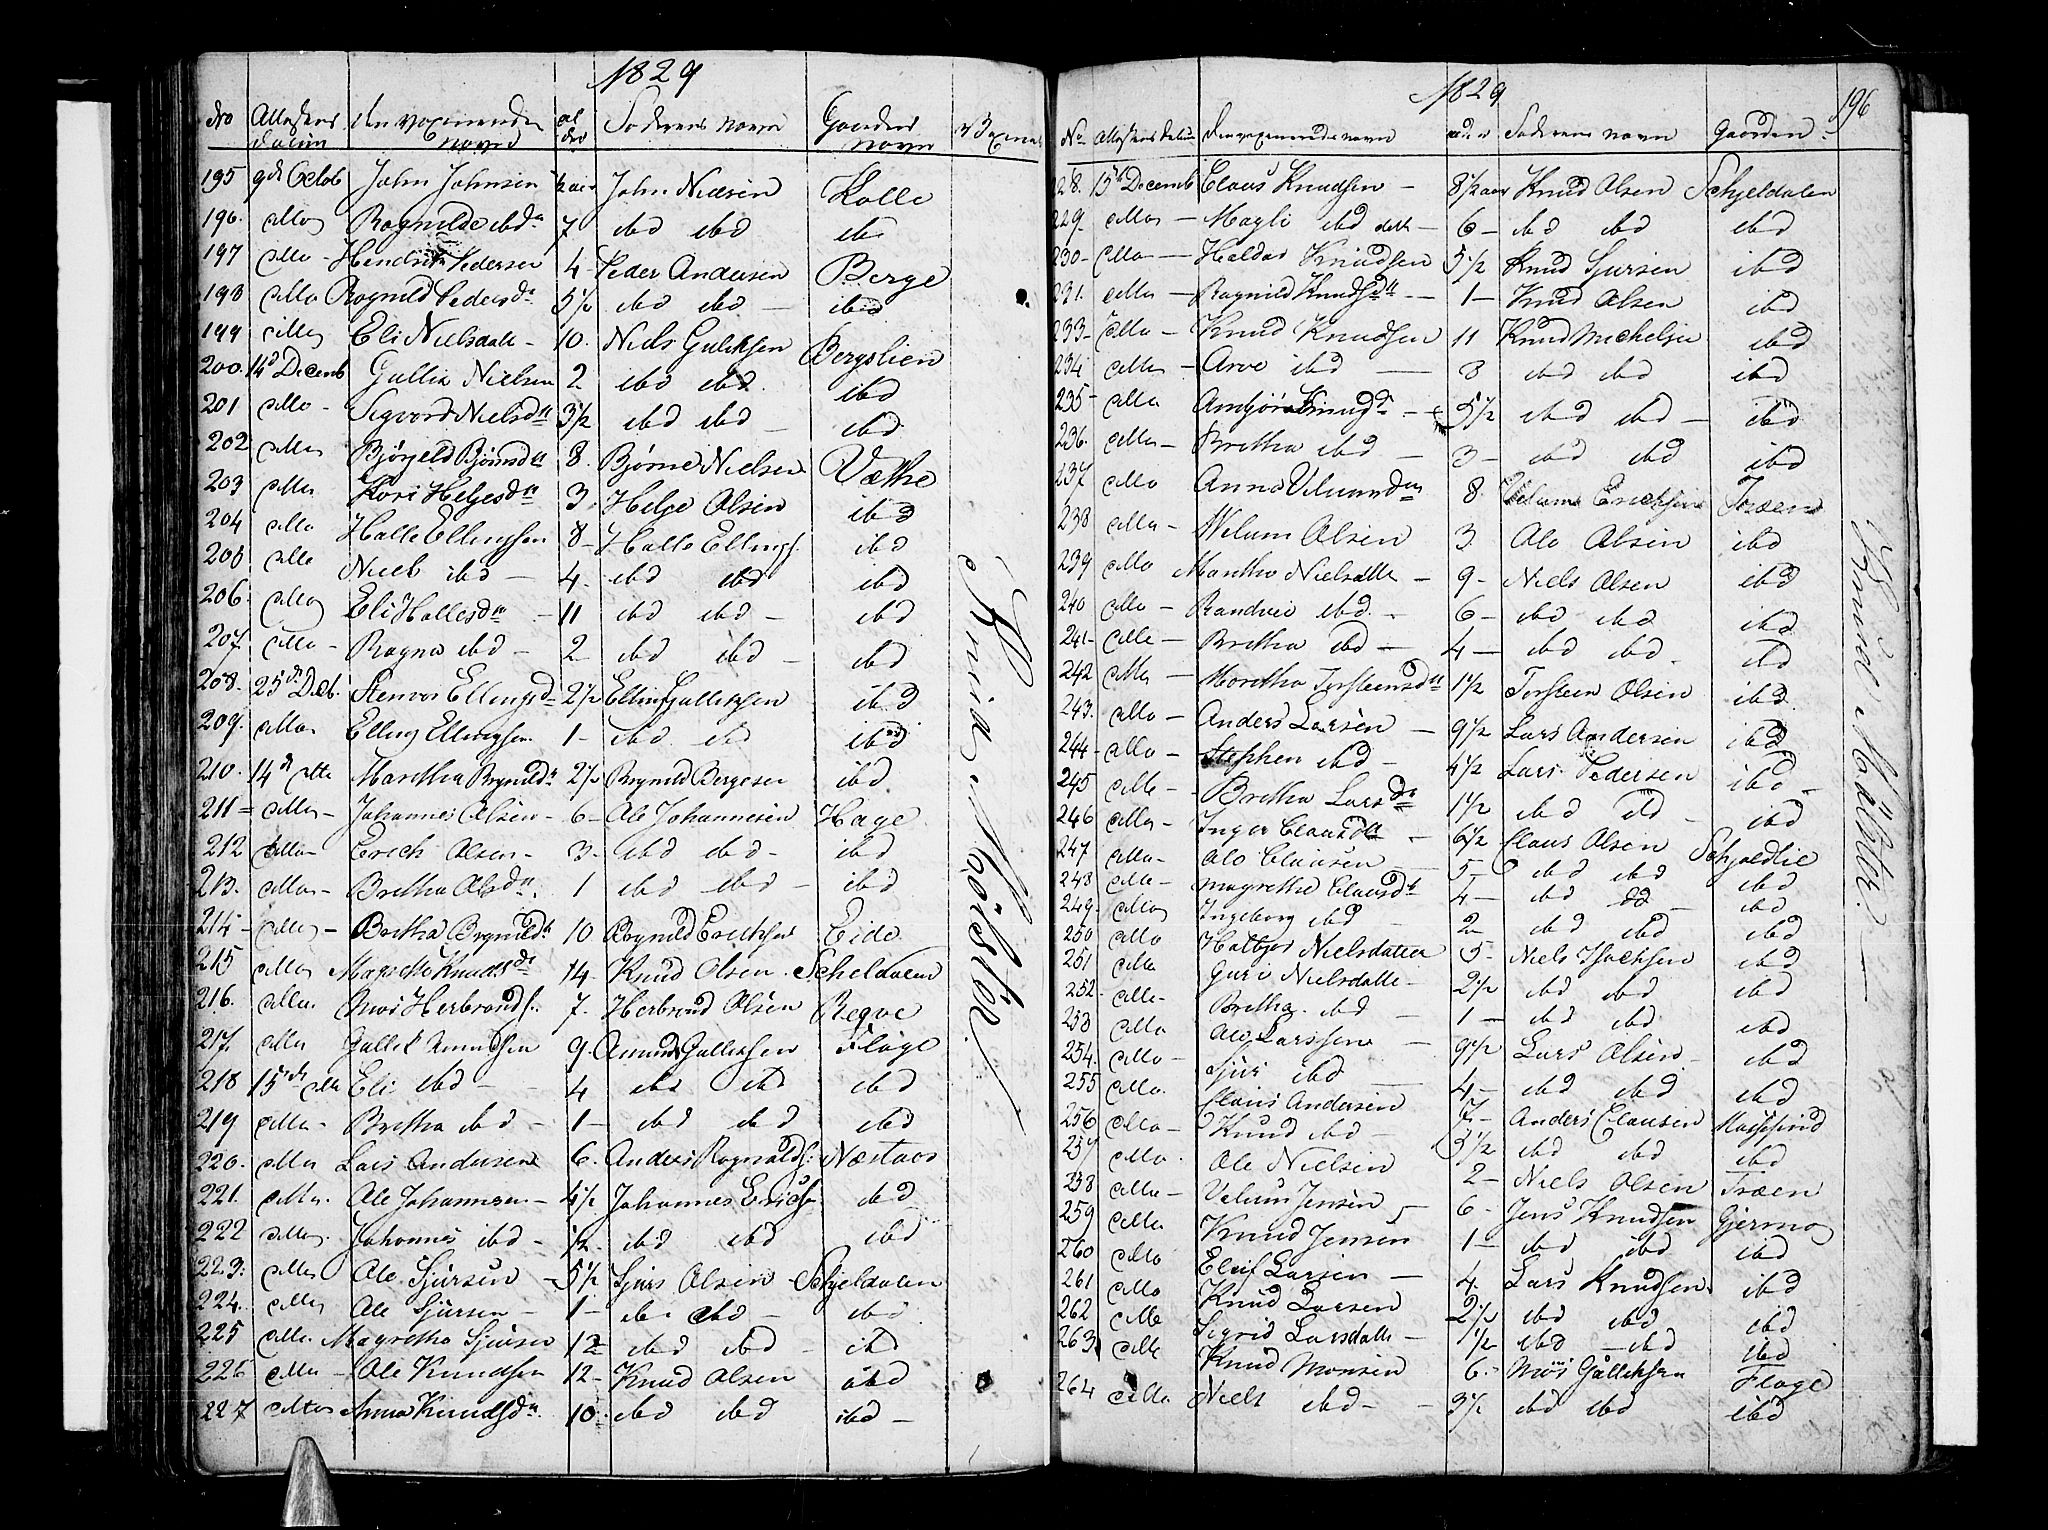 1829
No Attestens datum den vaxinerendes navn alder Faderens navn Gaardens navn
195 9de Octob John Johnsen 1/2 aar John Nielsen Kolle
196. dito Ragnilde ibd 7 ibd ibd ib
197 dito - Hendrik Pedersen 4 - Peder Andersen Berge
198 dito Ragnild Pedersdr 5 1/2 ibd ibd - ibid
199 dito Eli Nielsdatt - 10. Niels Gulliksen Bergslien
200. 14d Decemb Gullik Nielsen 2 ibd ibd. ibd
201 dito - Sigvord Nielsdtr 3 1/2 ibd ibd - ibd
202 dito Bjørgild Bjørnsdtr 8. Bjørne Nielsen Væthe
203 dito Kari Helgesdtr 3. Helge Olsen ibd
204 dito Halle Ellingsen 8 - Halle Ellings. ibd
205 dito Niels ibd - 4. ibd ibd ibd
206. dito Eli Hallesdtr - 11 ibd ibd - ibd
207. dito - Ragna ibd - 2 ibd ibd - ibd
208. 25de Decb. Stenvor Ellingsd 2 1/2 Elling Gulliksen ibd
209. dito Elling Ellingsen 1 - ibd ibd ibd
210. 14de dito Maretha Brynildr 2 1/2 Brynild Bergesen ibd
211 = dito - Johannes Olsen - 6 - Ole Johannesen Hage
212 dito - Erich Olsen - 3 - ibd ibd - ibd
213. dito - Bretha Olsdtr. 1 ibd ibd - ibd
214 - dito - Bretha Brynildr 10 Brynild Erichsen Eide
215 dito Marette Knudsdr 14 - Knud Olsen. Scheldalen
216. dito. Mons Herbrands. 7. Herbrand Olsen Reqve
217. dito Gullek Amundsen 9. Amund Gulliksen Flage
218 15de dito Eli ibd - 4 ibd ibd ibd
219 dito - Bretha ibd - 1 - ibd ibd ibd
220. dito Lars Andersen 6. Anders Ragnalds: Næstaas
221. dito. Ole Johannesen - 4 1/2 Johannes Erichs ibd
222 dito. Johannes ibd - 1/2. ibd ibd ibd
223: dito Ole Sjursen - 5 1/2 Sjurs Olsen - Schjeldalen
224. dito Ole Sjursen - 1 - ibd ibd - ibd
225 dito. Magretha Sjursen 12 ibd ibd - ibd
226 dito - Ole Knudsen 12 - Knud Olsen ibd
227 dito Anna Knudsdtr. 10. ibd ibd ibd -
1829
196
No Attestens datum den vaxinerendes navn alder Faderens navn Gaarden
228. 15de Decemb Claus Knudsen - 8 1/2 aar Knud Olsen Schjeldalen
229 - dito - Magli ibd datt - 6 - ibd ibd ibd
230 - dito - Haldor Knudsen 5 1/2 Knud Sjursen ibd
231. dito - Ragnild Knudsdtr - 1 - Knud Olsen ibd
233 - dito - Knud Knudsen 11 Knud Michelsen ibd
234 dito - Arve ibd - 8 ibd ibd ibd
235 - dito Ambjør Knudsd - 5 1/2 ibd ibd - ibd
236. dito - Bretha ibd - 3 - ibd ibd ibd
237 dito Anna Velumsdtr 8. Velum Erichsen Træen
238 dito - Welum Olsen 3. Ole Olsen ibd
239 dito Martha Nielsdatt - 9 - Niels Olsen ibd
240 dito - Randvei ibd. - 6 - ibd ibd ibd
241 - dito - Bretha ibd - 4 - ibd ibd. ibd
242 dito - Maretha Torsteensdtr 1 1/2 Torsteen Olsen ibd.
243. dito - Anders Larsen - 9 1/2 Lars Andersen ibd
244 - dito - Stephen ibd - 4 1/2 Lars Pedersen ibd -
245 dito - Bretha Larsdr 1 1/2 ibd ibd - ibd
246 dito - Inger Clausdtr - 6 1/2 Claus Olsen Schjeldlie
247 dito - Ole Clausen - 5 - ibd ibd ibd
248 dito - Magrethe Clausdtr 4 - ibd ibd - ibd
249. dito Ingeborg ibd - 2 ibd ibd ibd
250 dito Halbjør Nielsdatter 5 - Niels Isachsen ibd
251 dito Guri Nielsdatt - 2 1/2 ibd ibd ibd
252. dito - Bretha. ibd - 1 - ibd ibd. ibd
253 dito Ole Larssen - 9 1/2 Lars Olsen - ibd
254. dito - Sjur ibd - 4 - ibd ibd ibd
255 dito. Claus Andersen 7 - Anders Clausen
256 dito - Knud ibd - 3 1/2 ibd ibd ibd
257 dito. Ole Nielsen 2 - Niels Olsen Træen
258 dito - Velum Jensen - 6. Jens Knudsen Gjermo
259 dito Knud Jensen 1 - ibd ibd ibd
260 dito Eleif Larsen - 4. Lars Knudsen. ibd
261 dito Knud Larsen 2 1/2 ibd ibd ibd
262 dito Sigrid Larsdatt - 1 1/2 ibd - ibd ibd
263 dito Knud Monsen 6. Mons Gulliksen Flage
264 dito Niels ibd - - 3 1/2 ibd ibd ibd